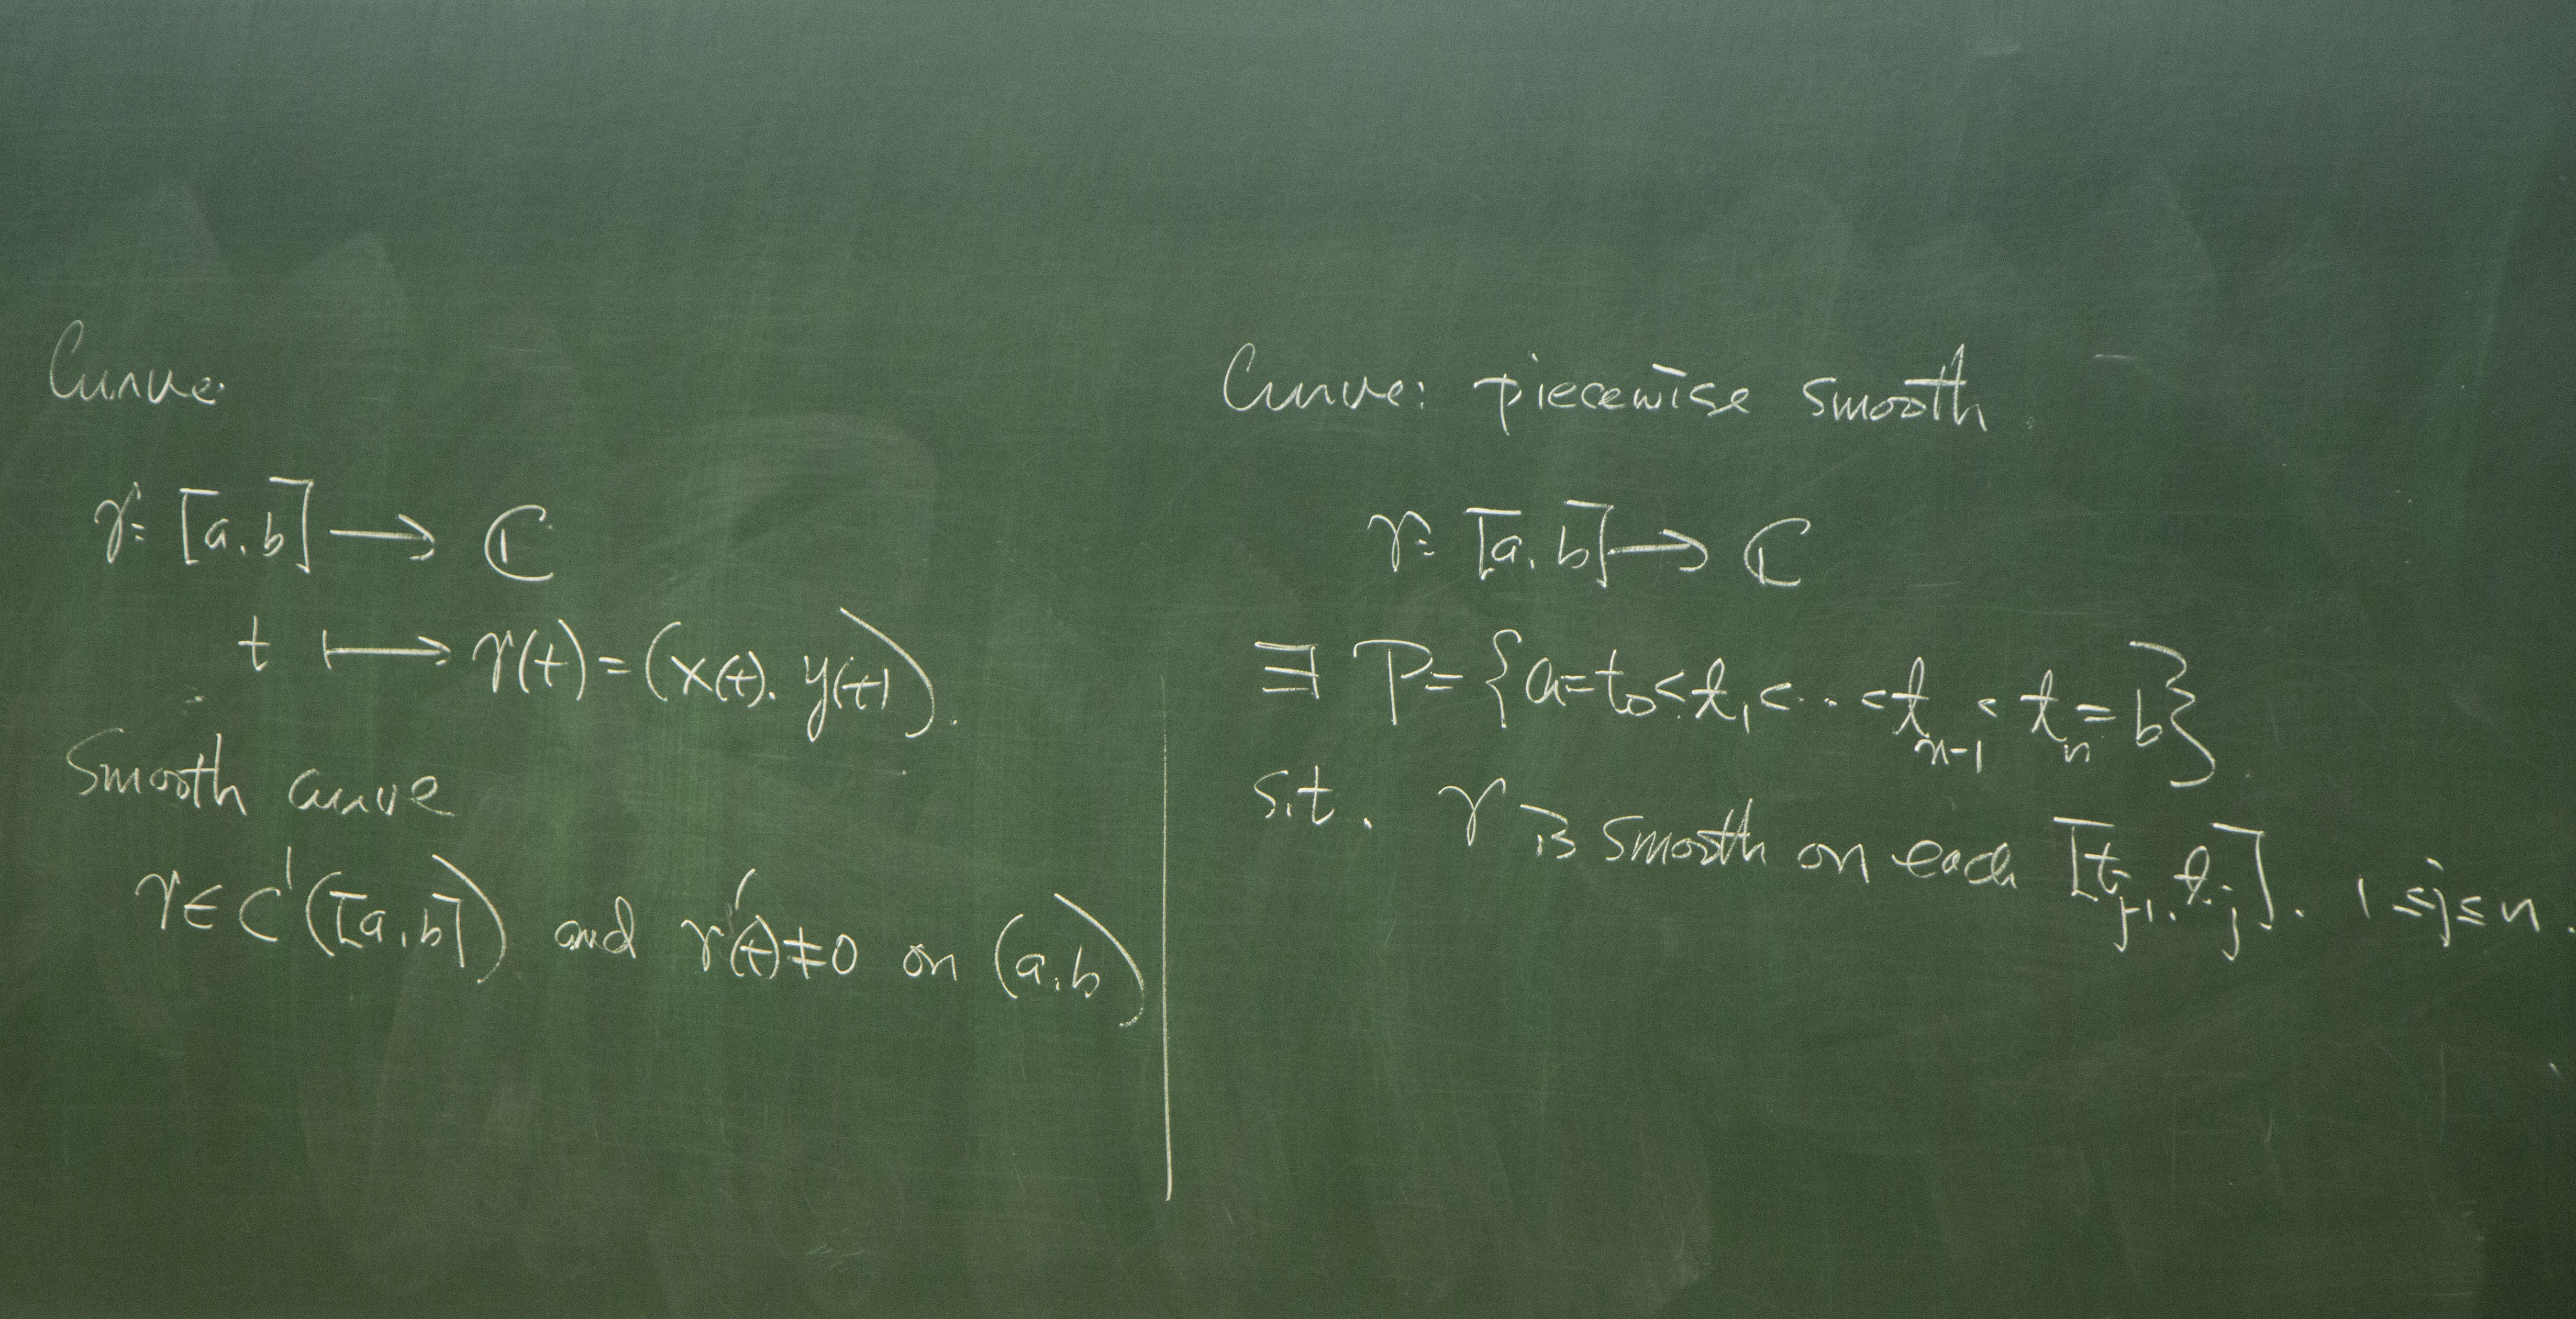 Curve:
γ: [a, b] → ℂ
t ↦ γ(t) = (x(t), y(t)).
Smooth curve
γ ∈ C¹([a, b]) and γ'(t) ≠ 0 on (a, b)
Curve: piecewise smooth.
γ: [a, b] → ℂ
∃ P = {a = t₀ < t₁ < ... < tₙ₋₁ < tₙ = b}.
s.t. γ is smooth on each [tⱼ₋₁, tⱼ]. 1 ≤ j ≤ n.